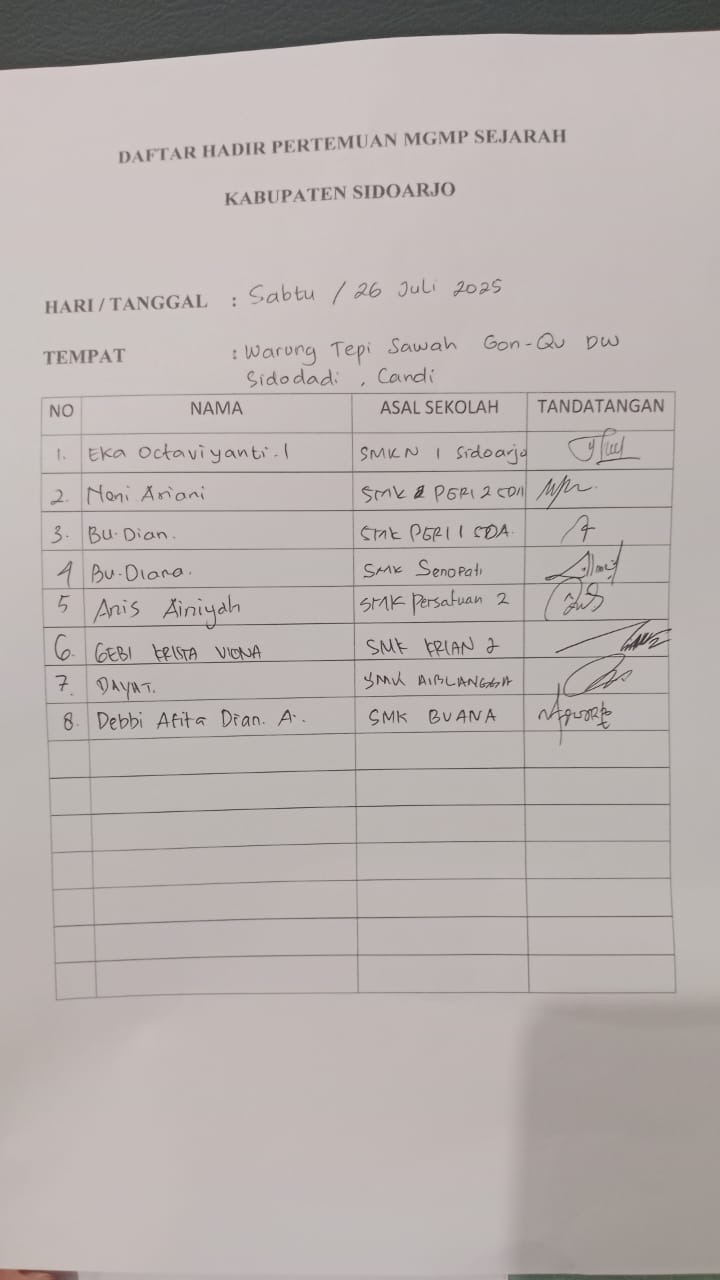 DAFTAR HADIR PERTEMUAN MGMP SEJARAH
KABUPATEN SIDOARJO
HARI / TANGGAL : Sabtu / 26 Juli 2025
TEMPAT : Warung Tepi Sawah Gon-Qu DW
Sidodadi , Candi
NO NAMA ASAL SEKOLAH TANDATANGAN
1. Eka Octaviyanti.I SMKN 1 Sidoarjo
2. Neni Ariani SMK PGRI 2 SDA
3. Bu. Dian. SMK PGRI 1 SDA.
4 Bu. Diana. SMK Senopati
5 Anis Ainiyah SMK Persatuan 2
6. GEBI KRISTA VIONA SMK KRIAN 2
7. DAYAT. SMK AIRLANGGA
8. Debbi Afita Dian. A. SMK BUANA